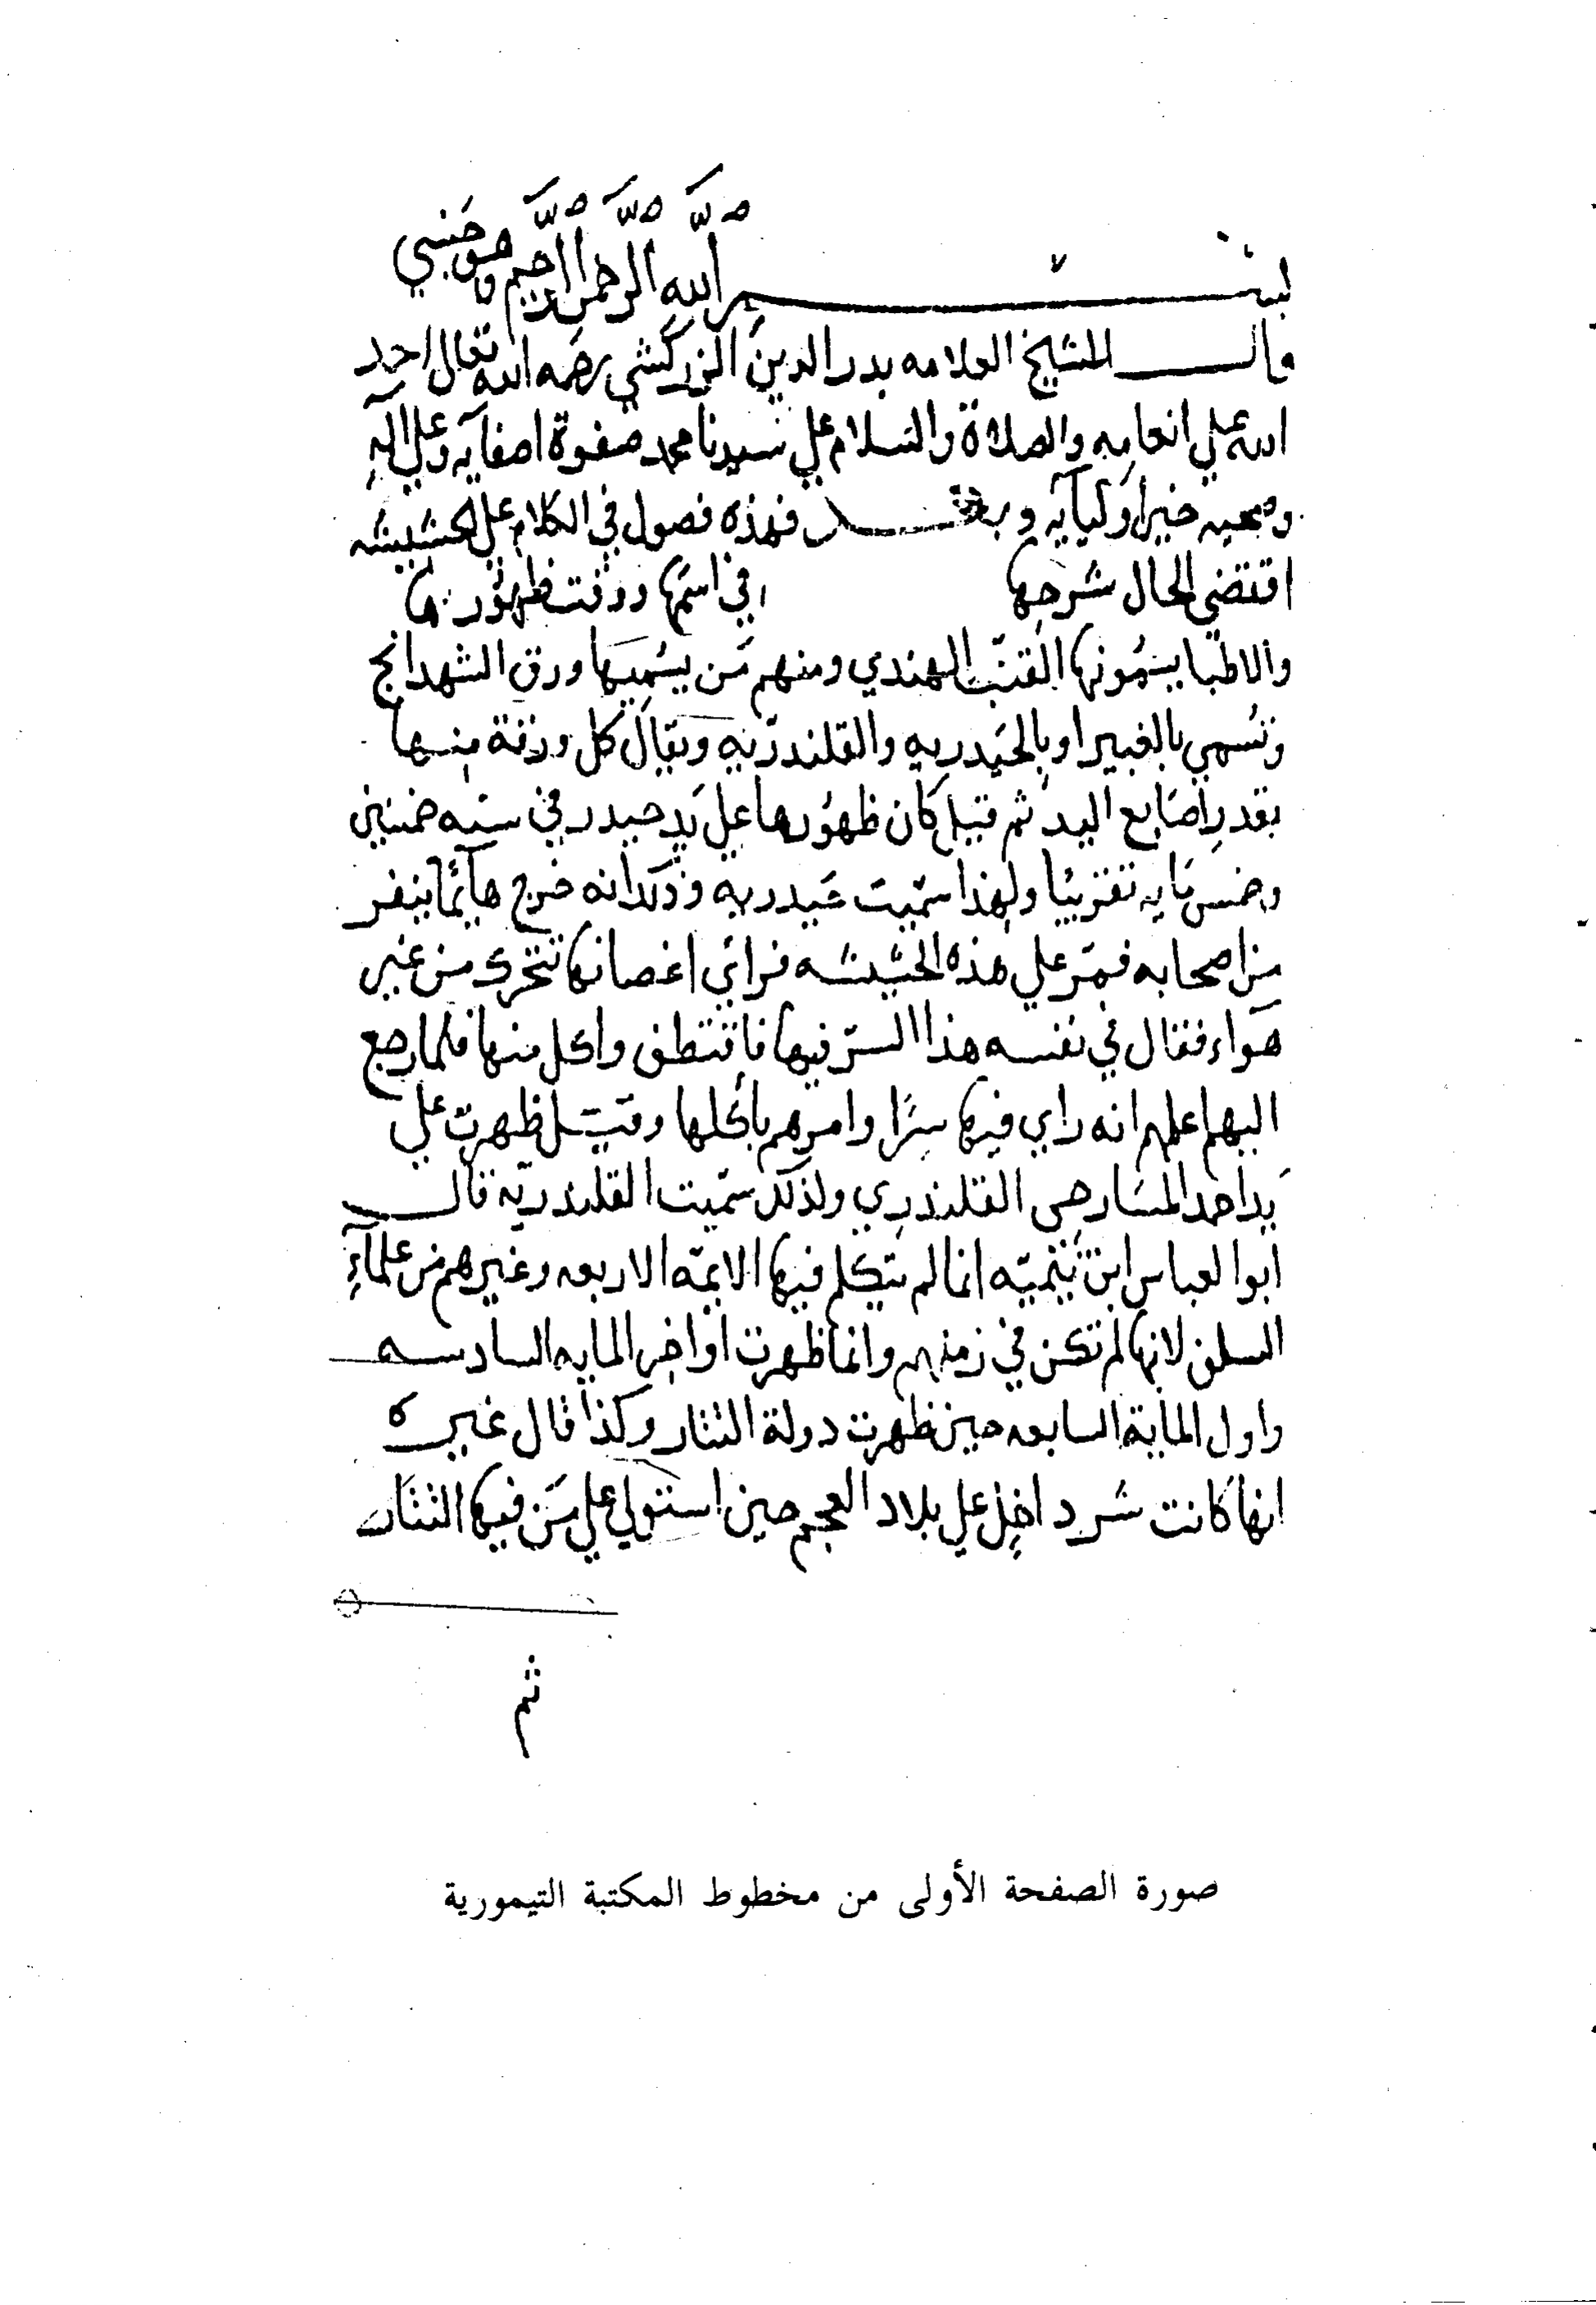 بسم الله الرحمن الرحيم وهو حسبي
قال الشيخ العلامه بدر الدين الزركشي رحمه الله تعالى احمد
الله علي انعامه والصلاة والسلام علي سيدنا محمد صفوة اصفيآيه وعلي اله
وصحبه خير اوليآيه وبعد فهذه فصول في الكلام علي الحشيشه
اقتضي الحال شرحها في اسمها ووقت ظهورها
والاطبا يسمونها القنب الهندي ومنهم من يسميها ورق الشهدانج
وتسمي بالغبيرا وبالحيدريه والقلندريه ويقال كل ورقة منها
بقدر اصابع اليد ثم قيل كان ظهورها علي يد حيدر في سنه خمسين
وخمس مايه تقريبا ولهذا سميت حيدريه وذلك انه خرج هآئما ينفر
من اصحابه فمر علي هذه الحشيشه فراي اغصانها تتحرك من غير
هواء فقال في نفسه هذا السر فيها فاقتطف واكل منها فلما رجع
اليهم اعلمهم انه راي فيها سرا وامرهم بأكلها وقيل ظهرت علي
يد احمد المسارحي القلندري ولذلك سميت القلندريه قال
ابو العباس ابن تيميه انما لم يتكلم فيها الايمه الاربعه وغيرهم من علمآء
السلف لانها لم تكن في زمنهم وانما ظهرت اواخر المايه السادسه
واول الماية السابعه حين ظهرت دولة التتار وكذا قال غيره
انها كانت شر داخل علي بلاد العجم حين استولي علي من فيها التتار
ثم
صورة الصفحة الأولى من مخطوط المكتبة التيمورية